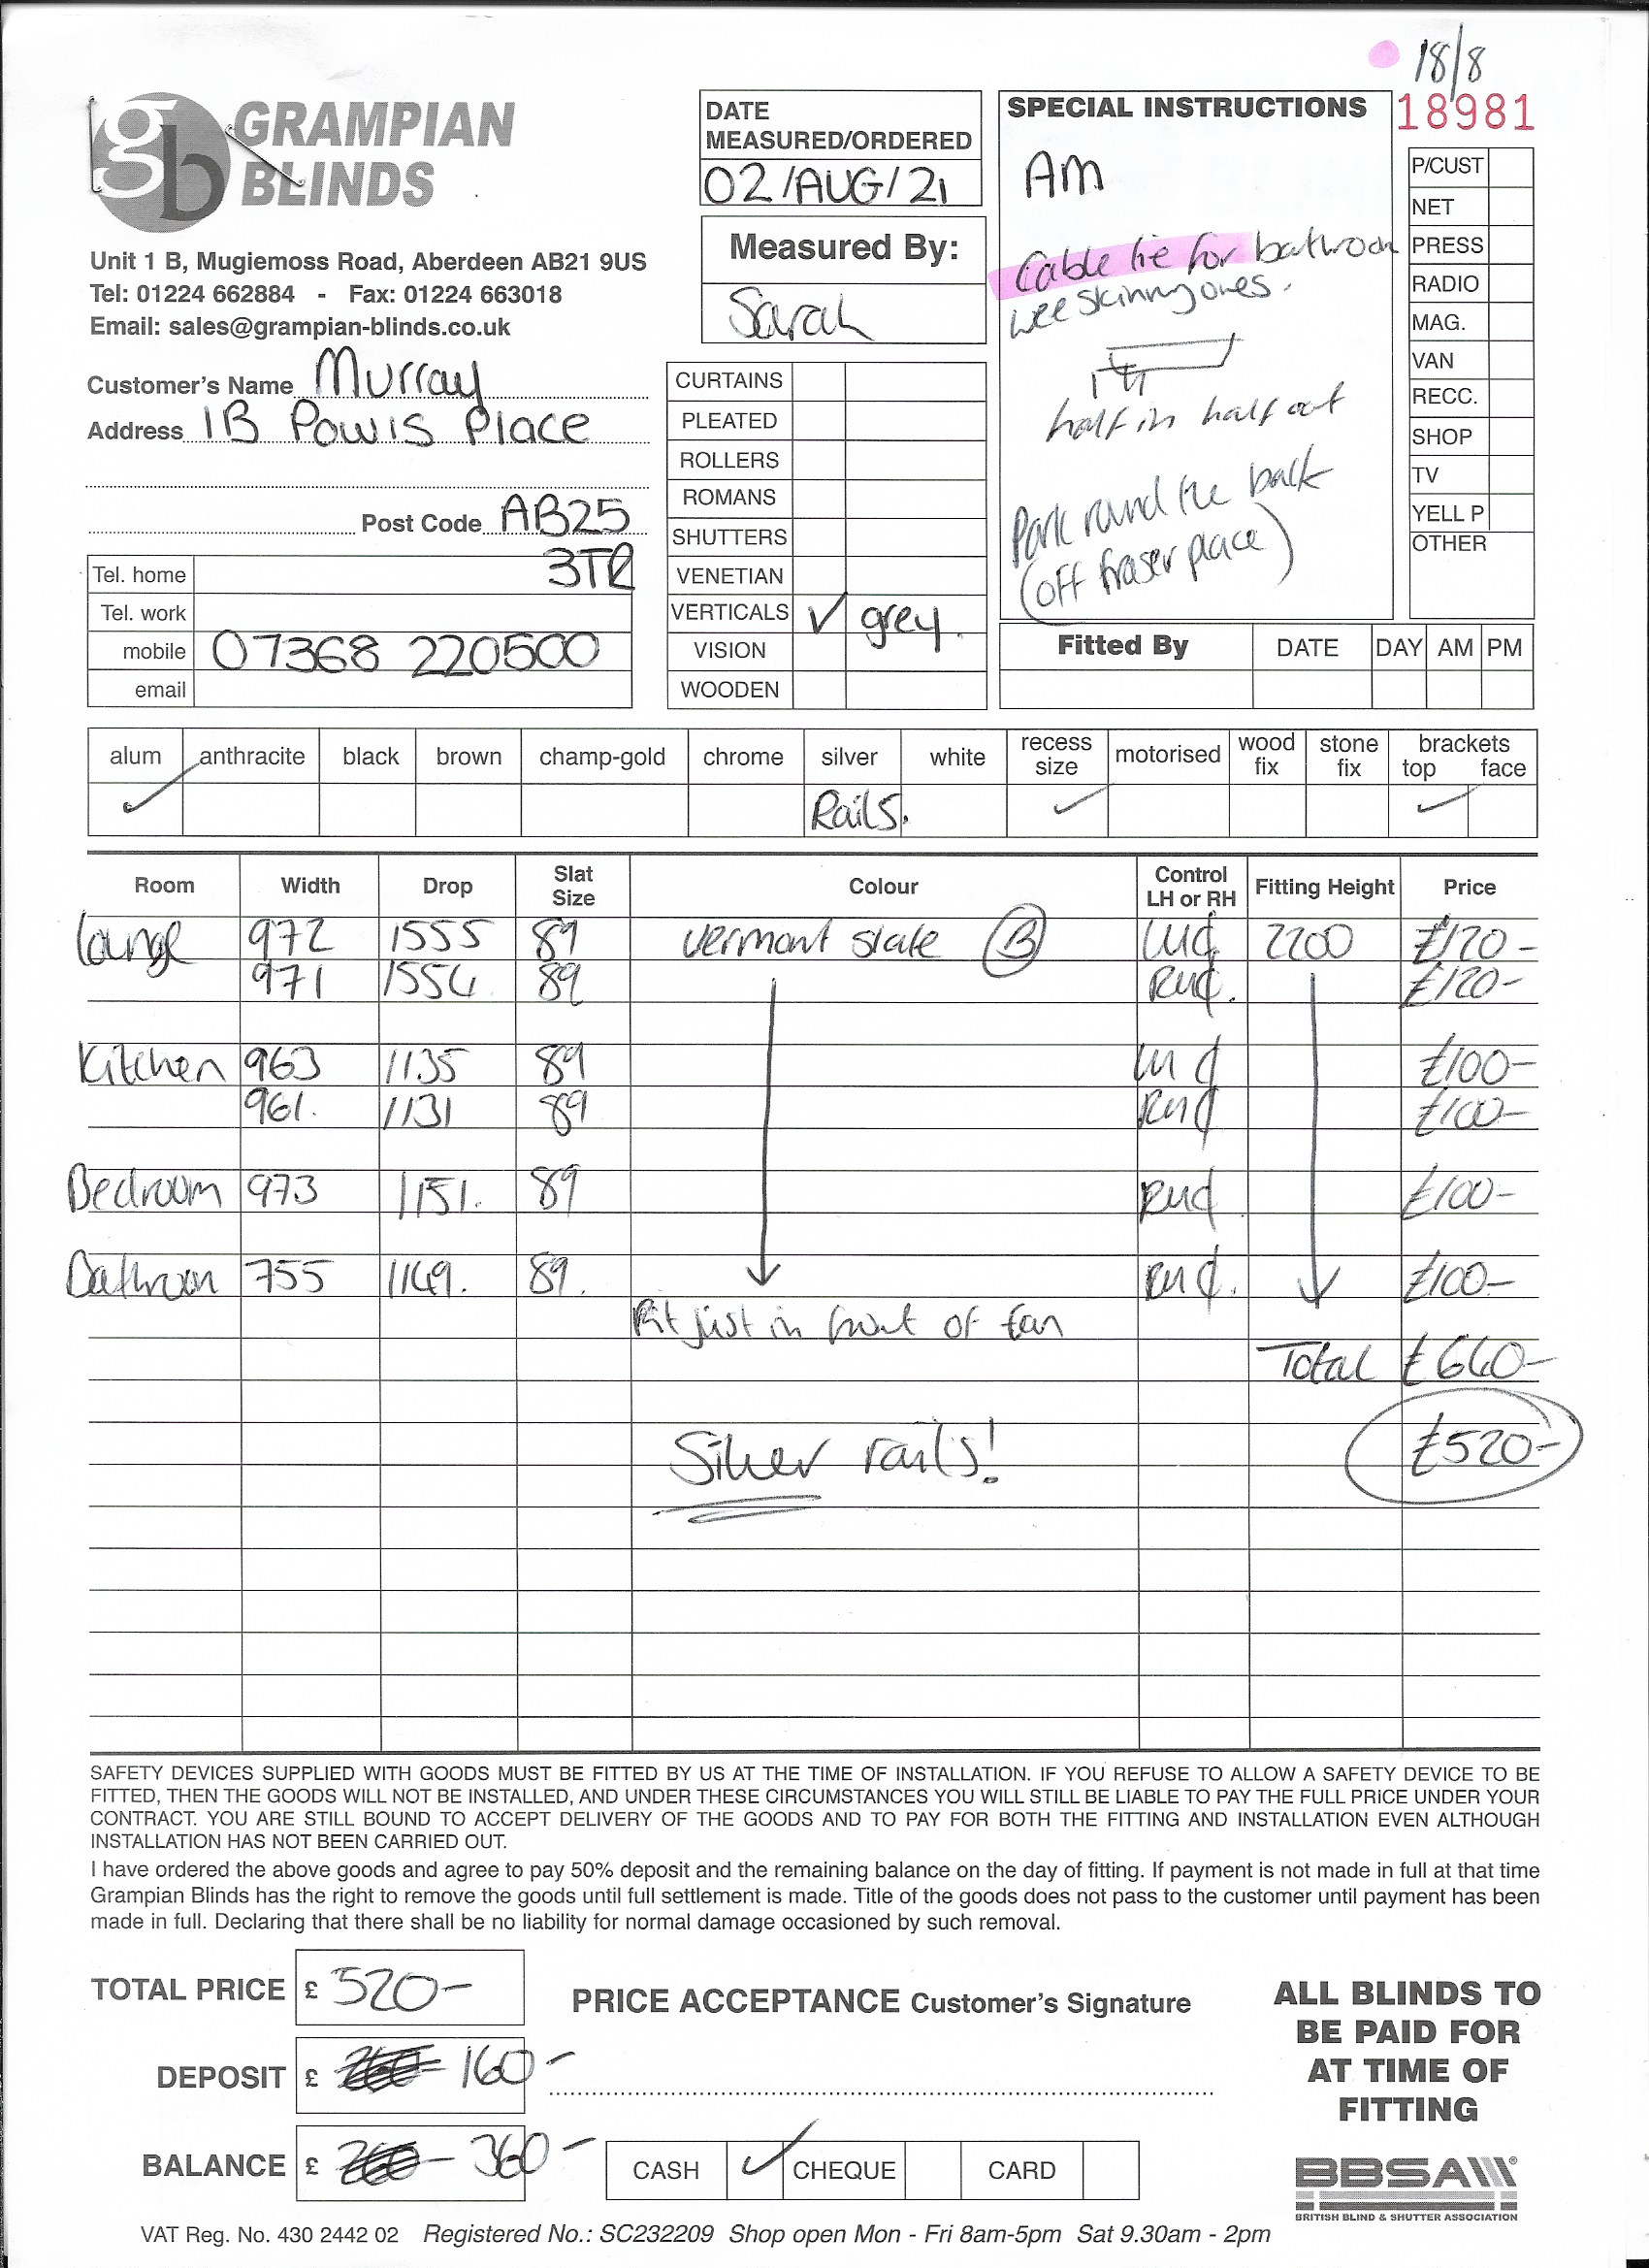 18/8
GRAMPIAN
BLINDS
Unit 1 B, Mugiemoss Road, Aberdeen AB21 9US
Tel: 01224 662884 - Fax: 01224 663018
Email: sales@grampian-blinds.co.uk
Customer's Name Murray
Address 1B Powis Place
Post Code AB25
3TR
Tel. home
Tel. work
mobile 07368 220500
email
DATE
MEASURED/ORDERED
02/AUG/21
Measured By:
Sarah
CURTAINS
PLEATED
ROLLERS
ROMANS
SHUTTERS
VENETIAN
VERTICALS ✓ grey.
VISION
WOODEN
SPECIAL INSTRUCTIONS
AM
Cable tie for bathroom
wee skinny ones.
half in half out
Park round the back
(off fraser place)
18981
P/CUST
NET
PRESS
RADIO
MAG.
VAN
RECC.
SHOP
TV
YELL P
OTHER
Fitted By DATE DAY AM PM
alum anthracite black brown champ-gold chrome silver white recess size motorised wood fix stone fix brackets top face
✓ Rails. ✓ ✓
Room Width Drop Slat Size Colour Control LH or RH Fitting Height Price
Lounge 972 1555 89 Vermont slate B 2200 £120-
971 1554 89 £120-
Kitchen 963 1135 89 £100-
961. 1131 89 £100-
Bedroom 973 1151. 89 £100-
Bathroom 755 1149. 89. £100-
Fit just in front of fan
Total £640-
£520-
Silver rails!
SAFETY DEVICES SUPPLIED WITH GOODS MUST BE FITTED BY US AT THE TIME OF INSTALLATION. IF YOU REFUSE TO ALLOW A SAFETY DEVICE TO BE
FITTED, THEN THE GOODS WILL NOT BE INSTALLED, AND UNDER THESE CIRCUMSTANCES YOU WILL STILL BE LIABLE TO PAY THE FULL PRICE UNDER YOUR
CONTRACT. YOU ARE STILL BOUND TO ACCEPT DELIVERY OF THE GOODS AND TO PAY FOR BOTH THE FITTING AND INSTALLATION EVEN ALTHOUGH
INSTALLATION HAS NOT BEEN CARRIED OUT.
I have ordered the above goods and agree to pay 50% deposit and the remaining balance on the day of fitting. If payment is not made in full at that time
Grampian Blinds has the right to remove the goods until full settlement is made. Title of the goods does not pass to the customer until payment has been
made in full. Declaring that there shall be no liability for normal damage occasioned by such removal.
TOTAL PRICE £ 520-
DEPOSIT £ 160-
BALANCE £ 360-
PRICE ACCEPTANCE Customer's Signature
CASH ✓ CHEQUE CARD
ALL BLINDS TO
BE PAID FOR
AT TIME OF
FITTING
BBSA
BRITISH BLIND & SHUTTER ASSOCIATION
VAT Reg. No. 430 2442 02 Registered No.: SC232209 Shop open Mon - Fri 8am-5pm Sat 9.30am - 2pm